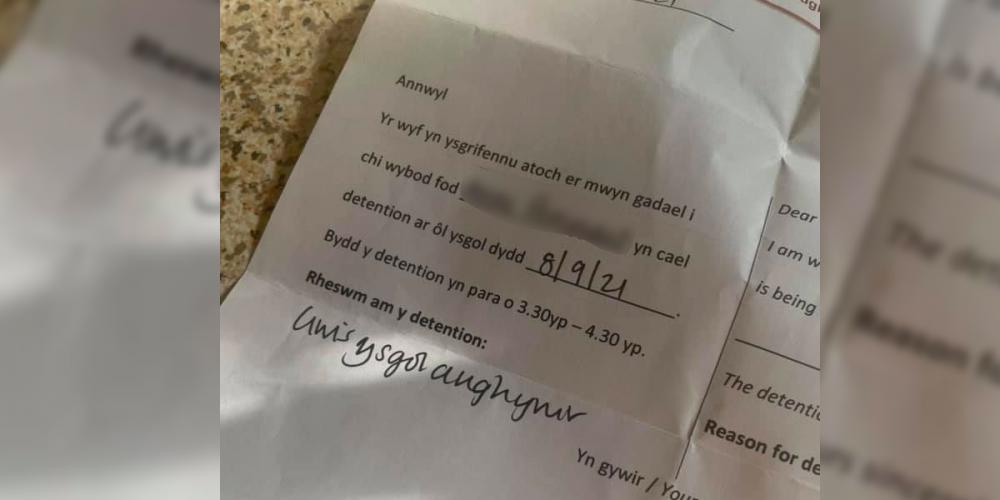 Annwyl
Yr wyf yn ysgrifennu atoch er mwyn gadael i
chi wybod fod
yn cael
detention ar ôl ysgol dydd 8/9/21.
Bydd y detention yn para o 3.30yp – 4.30 yp.
Rheswm am y detention:
Unis ysgol anghywir
Yn gywir / You
Dear
I am w
is being
The detentio
Reason for de